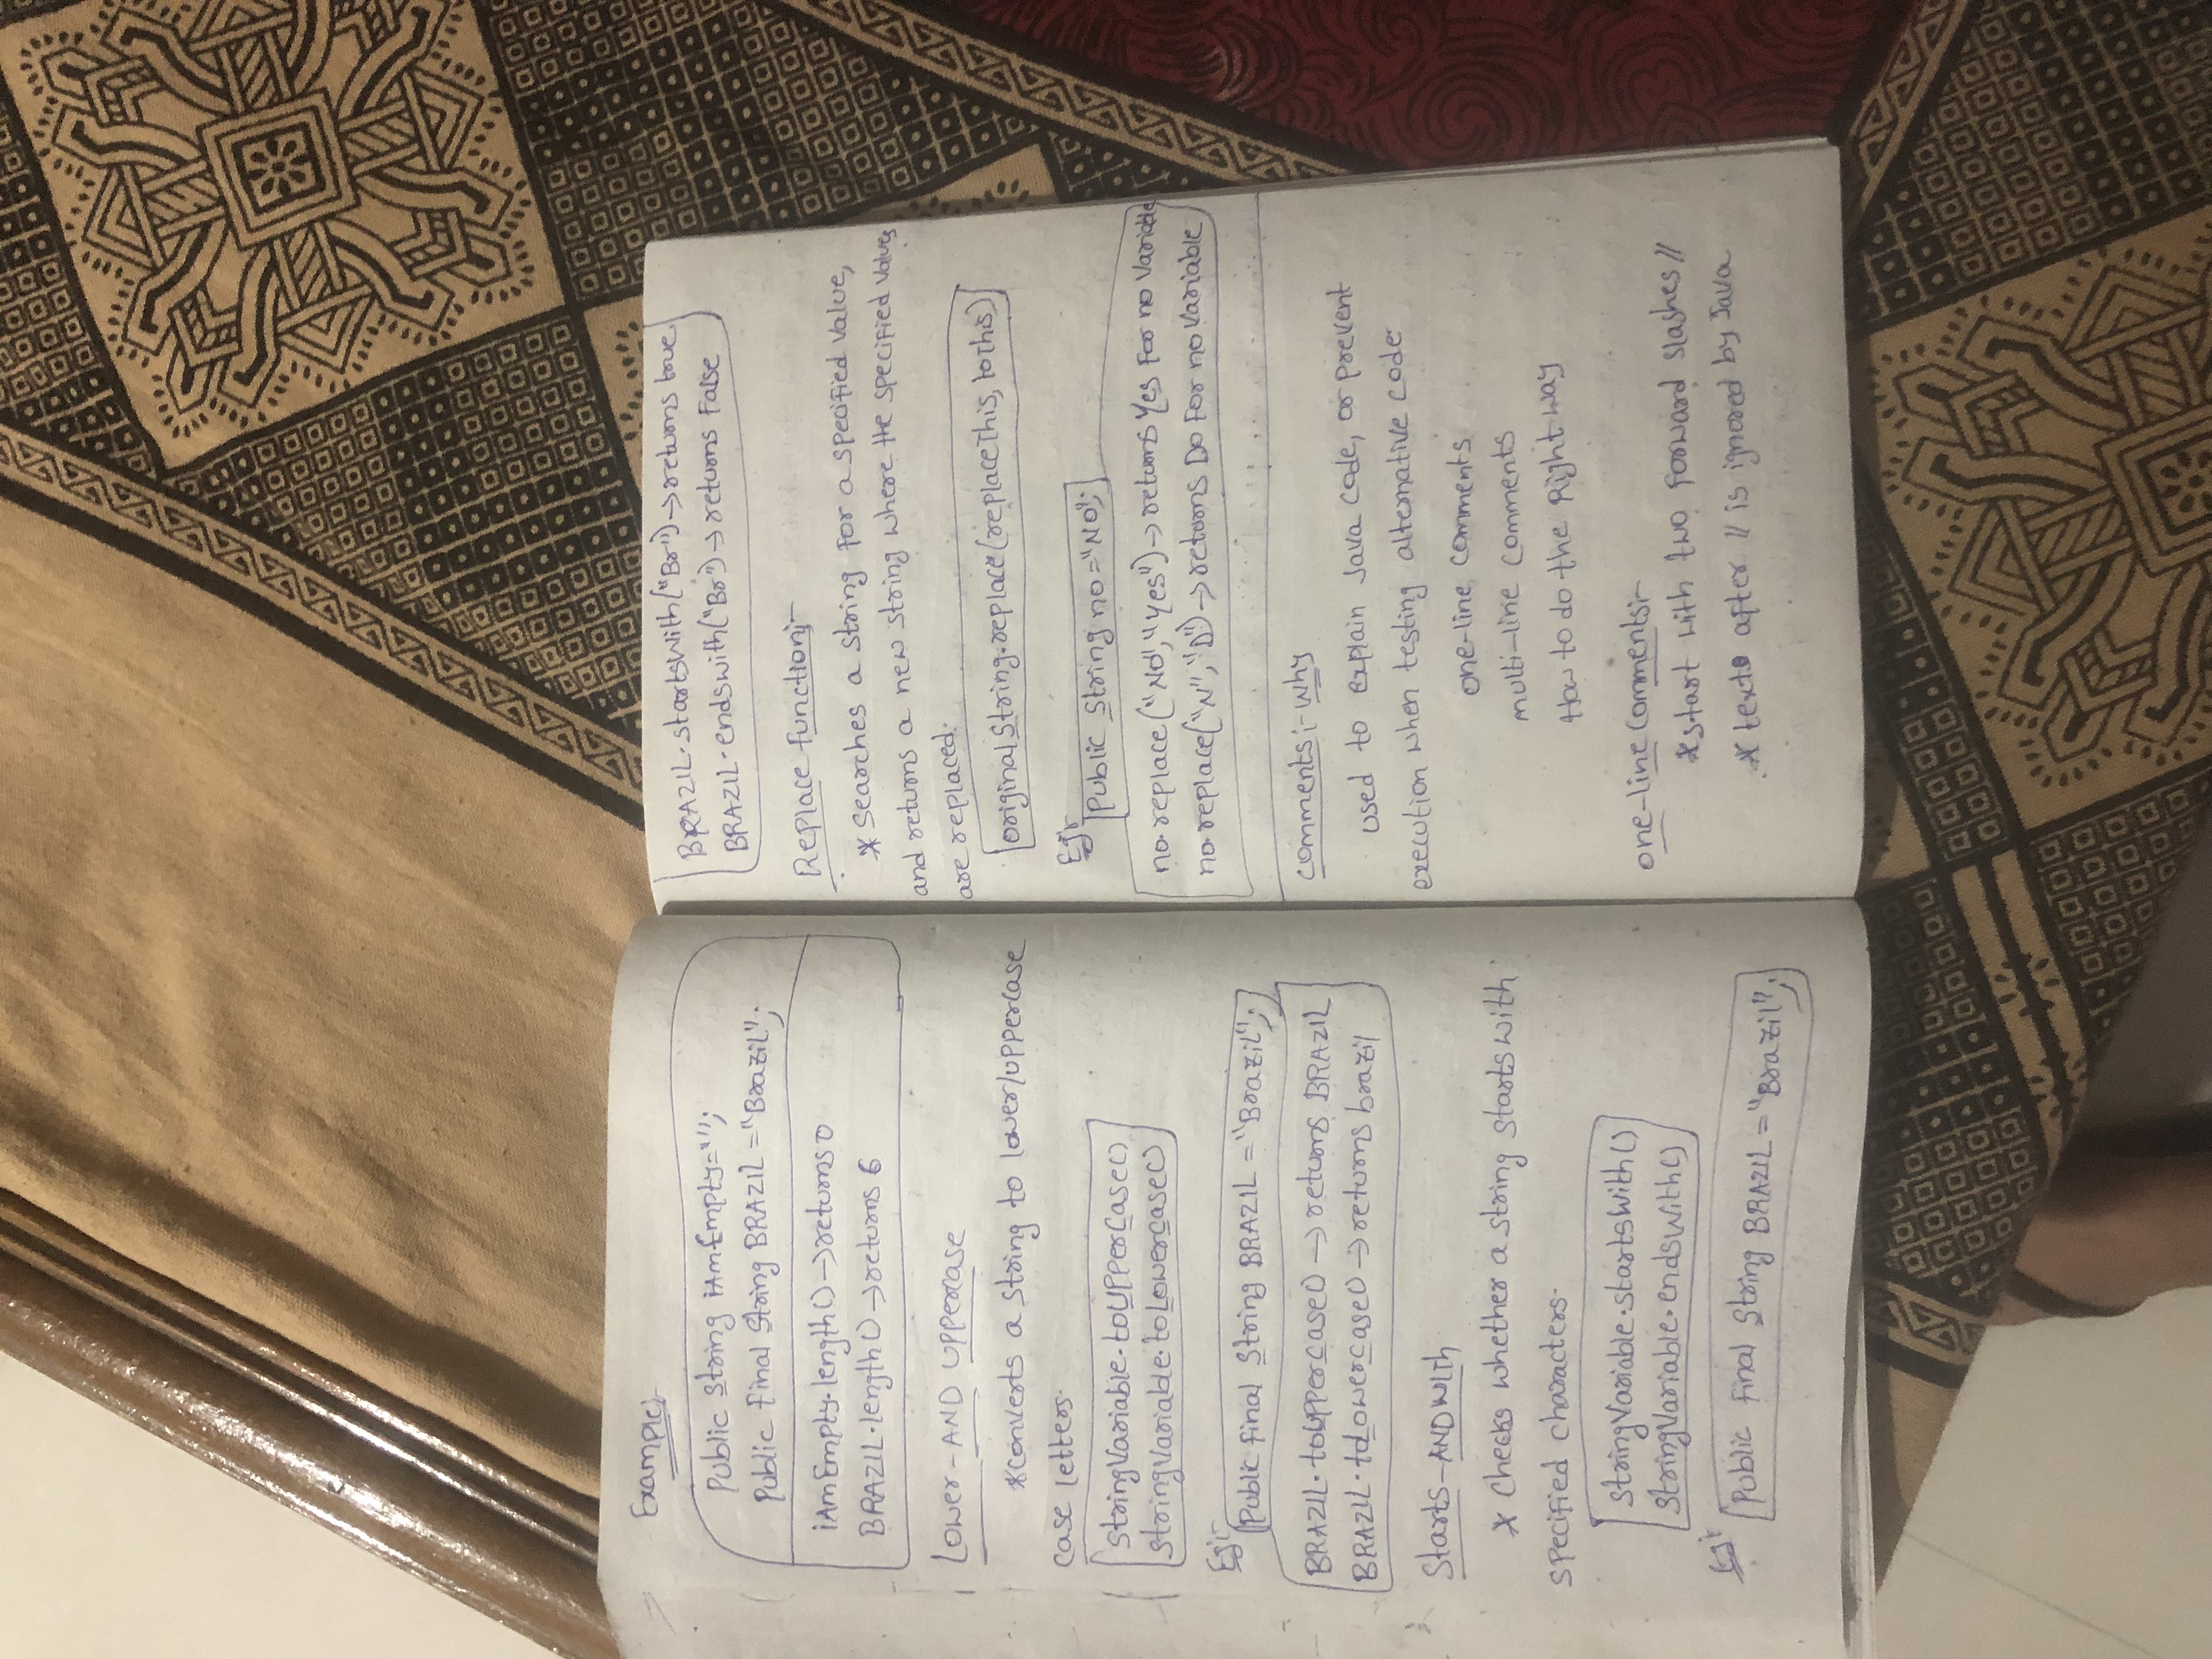 Example:-
Public String iAmEmpty="";
Public final String BRAZIL="Brazil";
iAmEmpty.length()→returns 0
BRAZIL.length()→returns 6
Lower-AND UPPercase
*converts a string to lower/uppercase
case letters.
StringVariable.toUpperCase()
StringVariable.toLowerCase()
Eg:-
Public final String BRAZIL="Brazil";
BRAZIL.toUpperCase()→returns BRAZIL
BRAZIL.toLowerCase()→returns brazil
Starts-AND With
* Checks whether a string starts with
specified characters.
StringVariable.startsWith()
StringVariable.endsWith()
Eg:-
Public final String BRAZIL="Brazil";
BRAZIL.startsWith("Br")→returns true
BRAZIL.endswith("Br")→returns False
Replace function:-
* Searches a string for a specified value,
and returns a new string where the specified values
are replaced.
original String.replace(replaceThis, toThis)
Eg:-
Public String no="No";
no.replace("No","Yes")→returns Yes for no Variable
no.replace("N","D")→returns Do for no Variable
Comments:- Why
used to explain Java code, or prevent
execution when testing alternative code
one-line comments
multi-line comments
How to do the Right Way
one-line comments:-
*start with two forward slashes //
*texts after // is ignored by Java